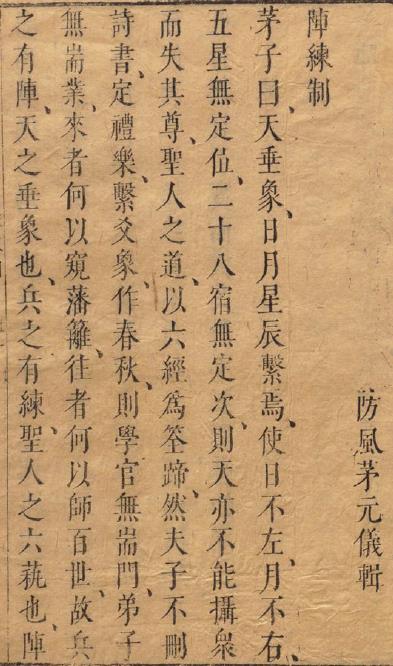 陣練制
防風茅元儀輯
茅子曰、天垂象、日月星辰繫焉、使日不左、月不右、
五星無定位、二十八宿無定次、則天亦不能攝衆
而失其尊、聖人之道、以六經為筌蹄、然夫子不刪
詩書、定禮樂、繫爻象、作春秋、則學官無耑門、弟子
無耑業、來者何以窺藩籬、往者何以師百世、故兵
之有陣、天之垂象也、兵之有練、聖人之六蓺也、陣